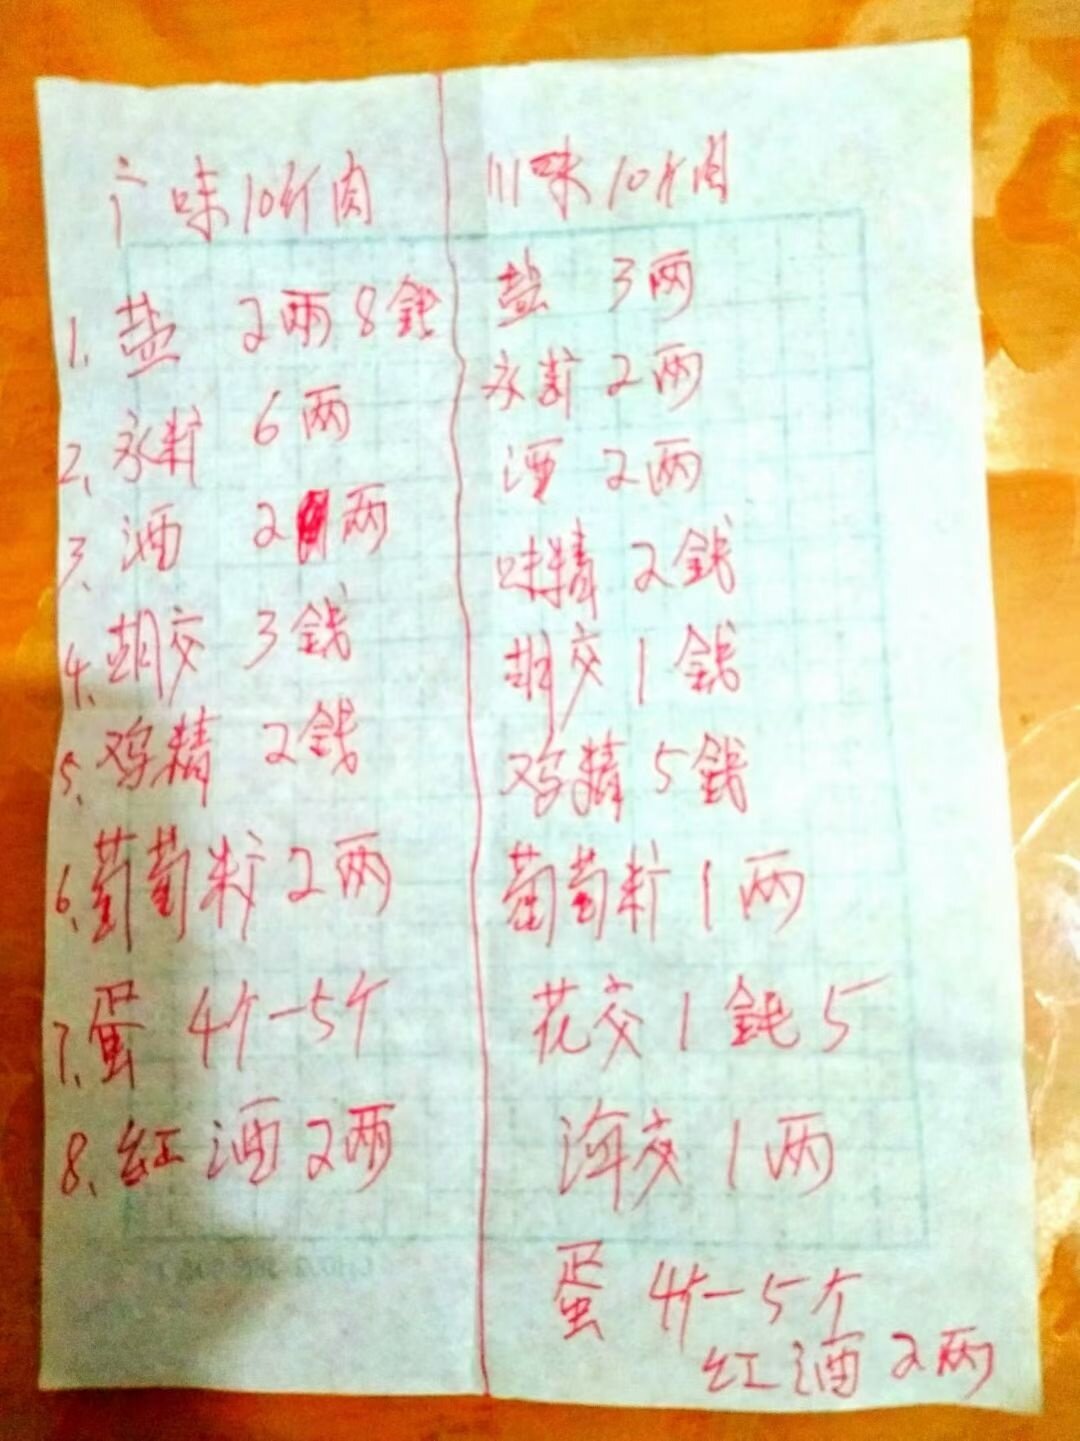 广味10斤肉
1、盐 2兩8銭
2、永糖 6两
3、酒 2两
4、胡交 3銭
5、鸡精 2銭
6、葡萄糖 2两
7、蛋 4个—5个
8、红酒 2两
川味10斤肉
盐 3两
永糖 2两
酒 2两
味精 2銭
胡交 1銭
鸡精 5銭
葡萄糖 1两
花交 1銭5
海交 1两
蛋 4个—5个
红酒 2两